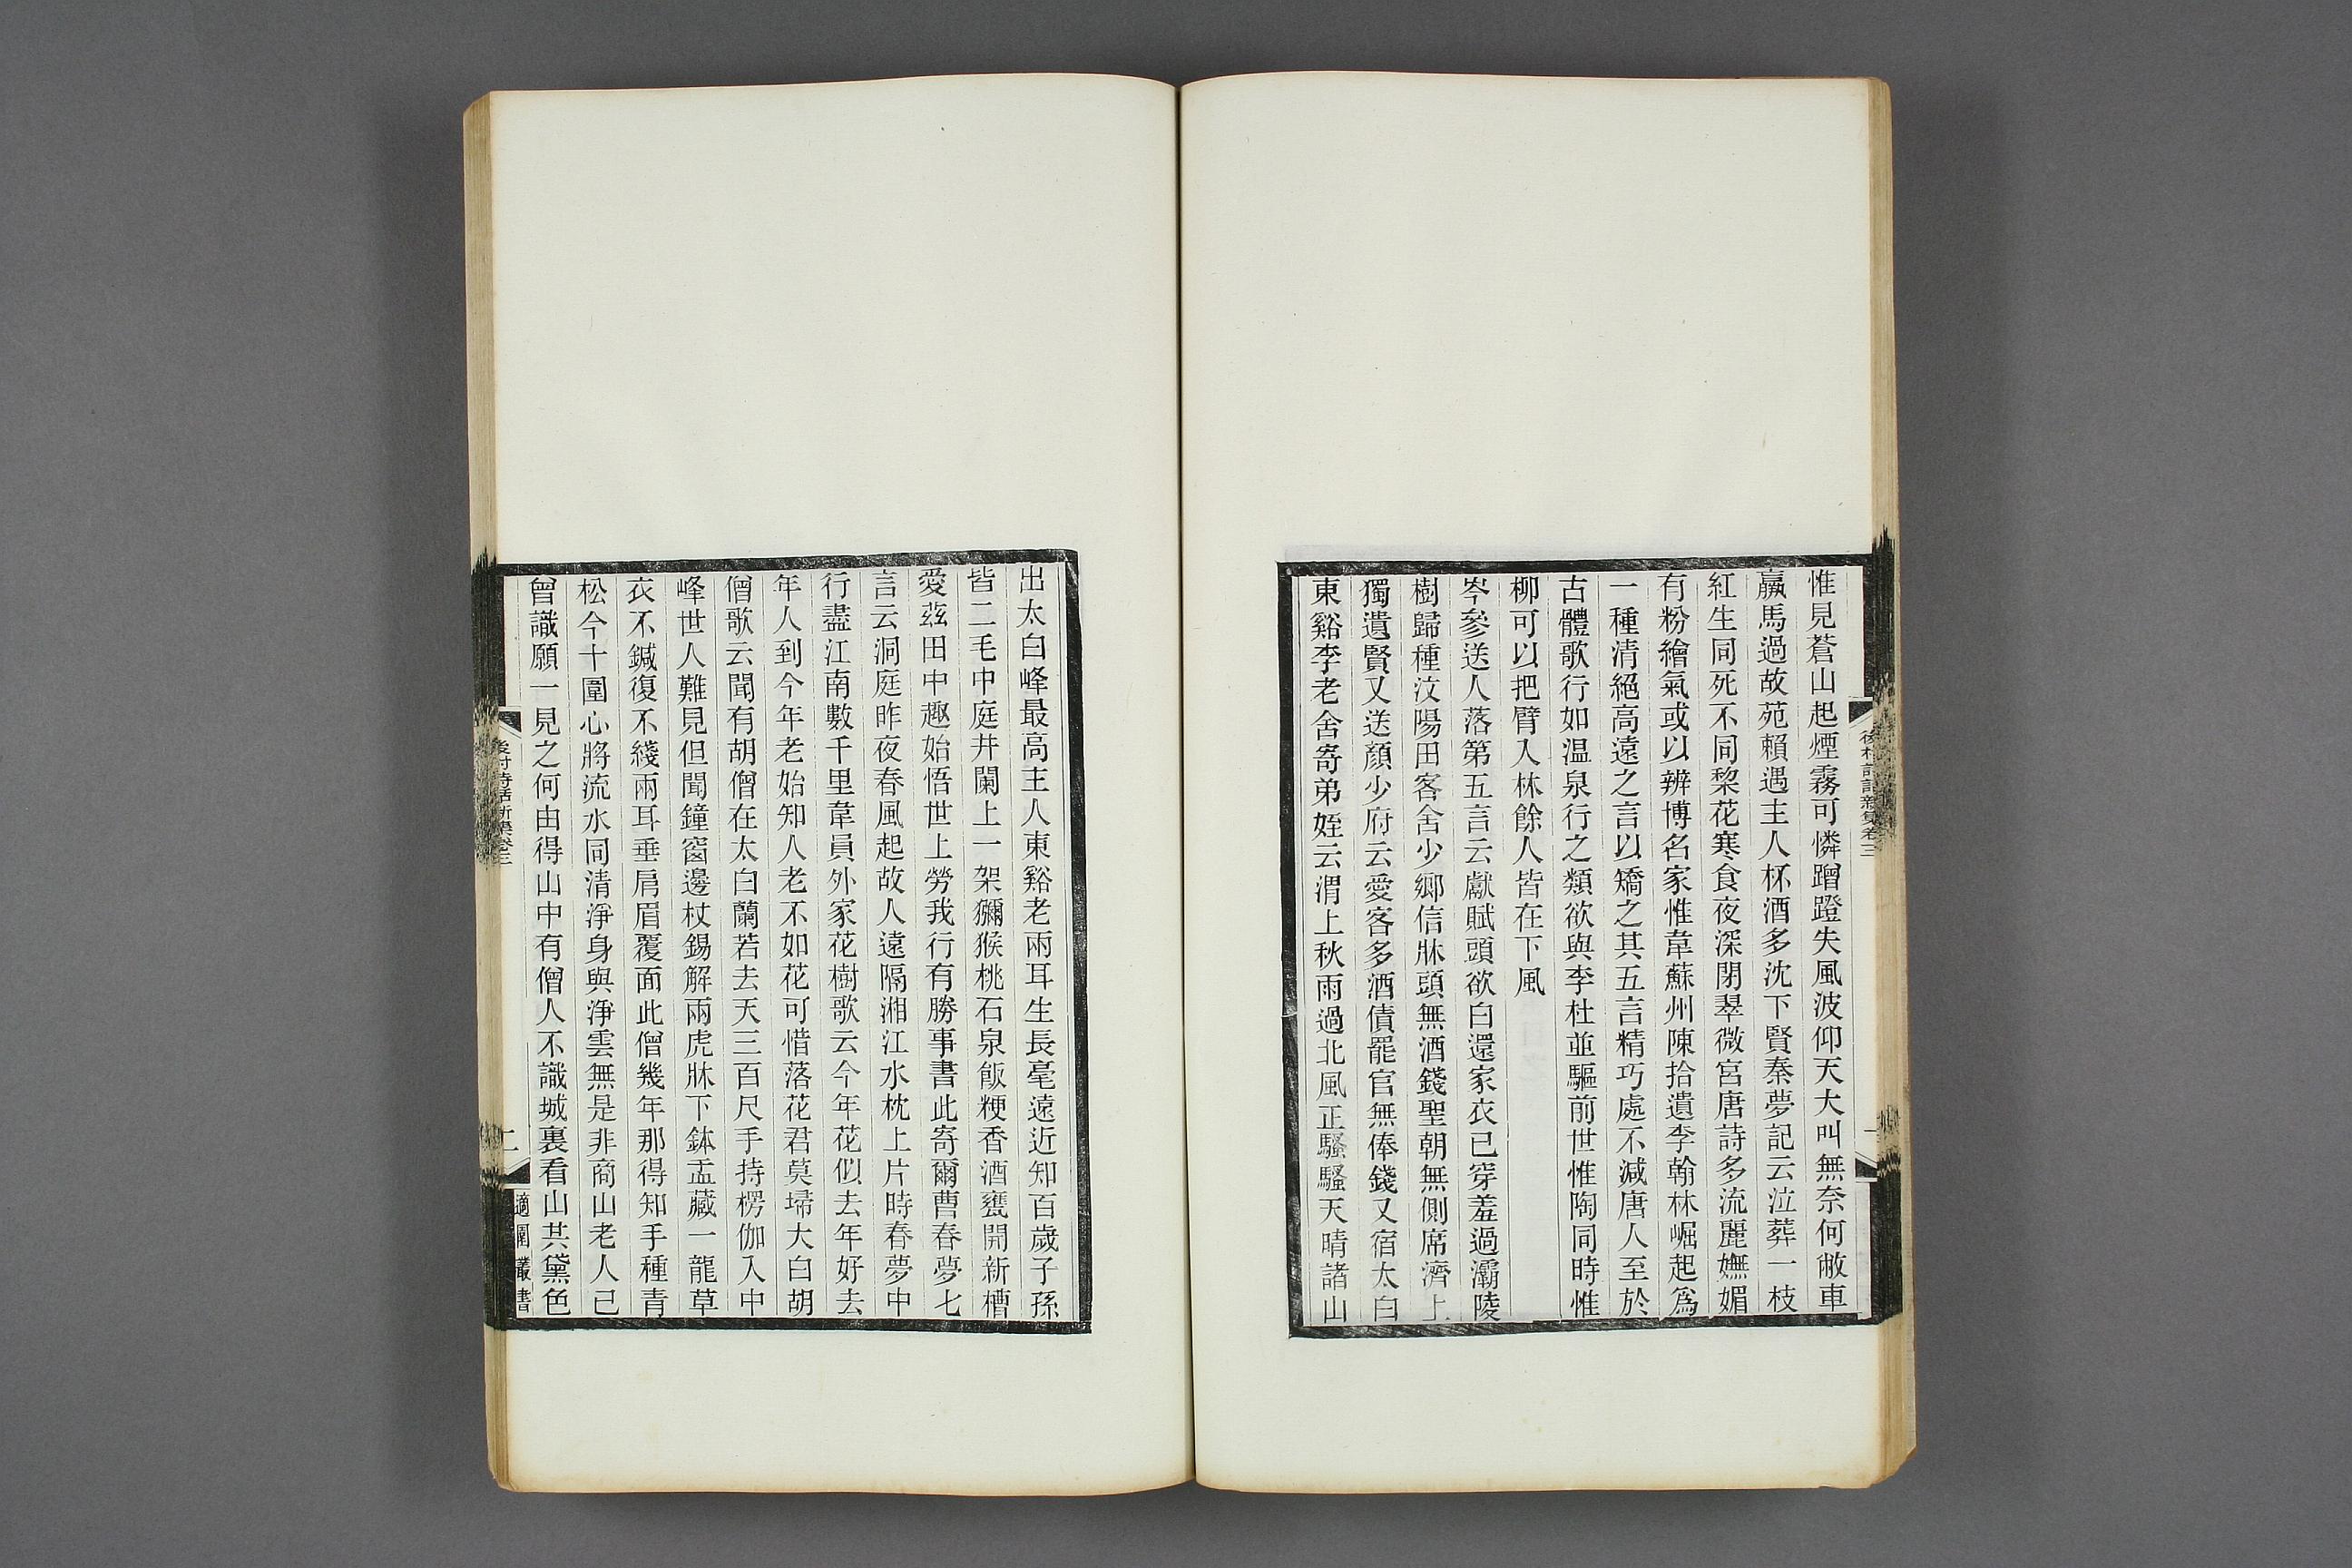 惟見蒼山起煙霧可憐蹭蹬失風波仰天大叫無奈何敝車
羸馬過故苑賴遇主人杯酒多沈下賢秦夢記云泣葬一枝
紅生同死不同棃花寒食夜深閉翠微宮唐詩多流麗嫵媚
有粉繪氣或以辨博名家惟韋蘇州陳拾遺李翰林崛起爲
一種清絕高遠之言以矯之其五言精巧處不減唐人至於
古體歌行如温泉行之類欲與李杜並驅前世惟陶同時惟
柳可以把臂入林餘人皆在下風
岑參送人落第五言云獻賦頭欲白還家衣已穿羞過灞陵
樹歸種汶陽田客舍少鄉信牀頭無酒錢聖朝無側席濟上
獨遺賢又送顏少府云愛客多酒債罷官無俸錢又宿太白
東谿李老舍寄弟姪云渭上秋雨過北風正騷騷天晴諸山
出太白峰最高主人東谿老兩耳生長毫遠近知百歲子孫
皆二毛中庭井闌上一架獼猴桃石泉飯粳香酒甕開新槽
愛茲田中趣始悟世上勞我行有勝事書此寄爾曹春夢七
言云洞庭昨夜春風起故人遠隔湘江水枕上片時春夢中
行盡江南數千里韋員外家花樹歌云今年花似去年好去
年人到今年老始知人老不如花可惜落花君莫埽大白胡
僧歌云聞有胡僧在太白蘭若去天三百尺手持楞伽入中
峰世人難見但聞鐘窗邊杖錫解兩虎牀下鉢盂藏一龍草
衣不鍼復不綫兩耳垂肩眉覆面此僧幾年那得知手種青
松今十圍心將流水同清淨身與淨雲無是非商山老人已
曾識願一見之何由得山中有僧人不識城裏看山共黛色
後村詩話新集卷三
二
適園叢書